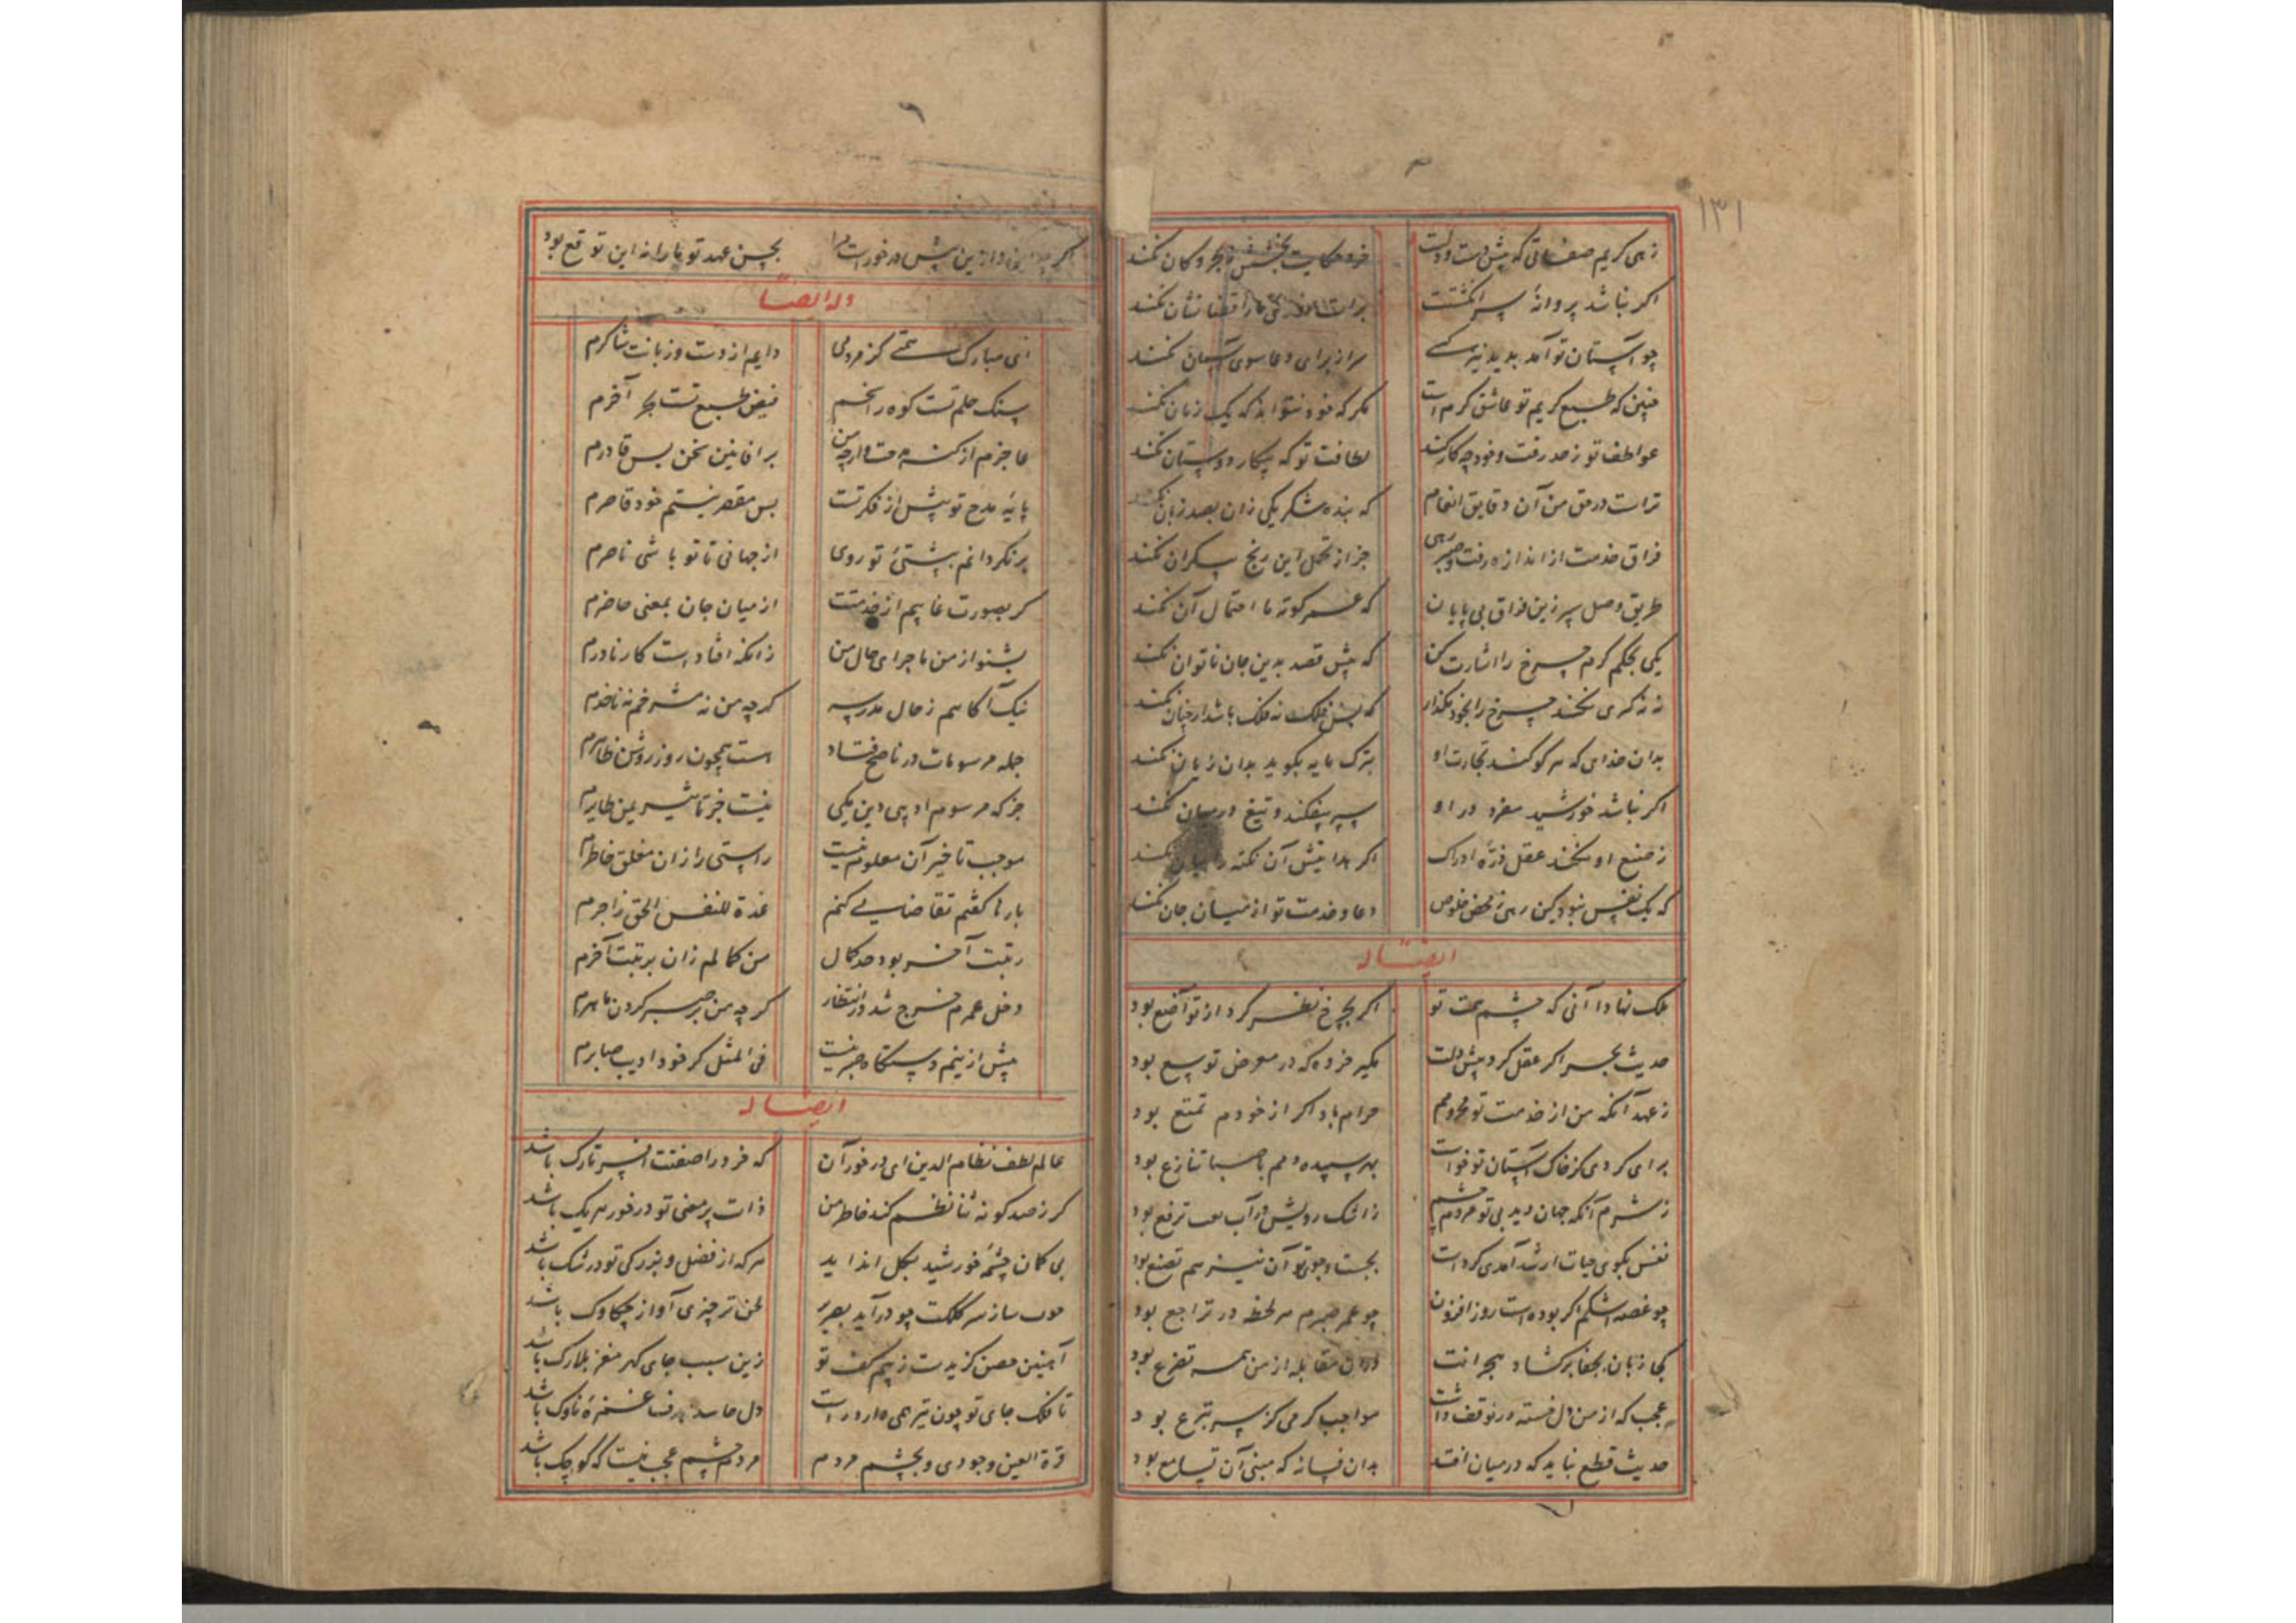 ۱۳۱
زهی کریم صفاتی که پیش دست و دلت خرد حکایت بخشش ز بحر و کان نکند
اگر نباشد پروانهٔ سر انگشتت برات قضا نشان نکند
چو آستان تو آمد پدید نیز کسی سر از برای دعا سوی آسمان نکند
چنین که طبع کریم تو عاشق کرم است مگر که خود نتواند که یک زمان نکند
عواطف تو ز حد رفت و خود چه کار کند لطافت تو که پیکار دوستان نکند
تراست در حق من آن دقایق انعام که بنده شکر یکی زان بصد زبان نکند
فراق خدمت از اندازه رفت و صبر رهی جز از تحمل این رنج بیکران نکند
طریق وصل سپر زین فراق بی پایان که عمر کوته ما احتمال آن نکند
یکی بحکم کرم چرخ را اشارت کن که بیش قصد بدین جان ناتوان نکند
نه نه کری نکند چرخ را بخود مگذار که فلک نه فلک باشد ار چنان نکند
بدان خدای که هر کو کند تجارت او بترک مایه بگوید بدان زیان نکند
اگر نباشد خورشید مفرد در او سپر بیفکند و تیغ در میان نکند
ز صنع او نکند عقل ذرهٔ ادراک اگر هدایتش آن نکته را بیان نکند
که یک نفس نبود کین رهی ز محض خلوص دعا و خدمت تو از میان جان نکند
ایضاله
ملک نهادا آنی که چشم همت تو اگر بچرخ نظر کرد از تواضع بود
حدیث بحر اگر عقل کرد پیش دلت مگیر خرده که در معرض توسع بود
ز عهد آنکه من از خدمت تو محرومم حرام باد اگر از خودم تمتع بود
برای کردی کز خاک آستان تو خواست بهر سپیده دمم با صبا تنازع بود
ز شرم آنکه جهان دید بی تو مردم چشم ز اشک رویش در آب ترفع بود
نفس بکوی حیات ار شد آمدی کرد است بجست و جوی تو آن نیز هم تصنع بود
چو غصه اشکم اگر بوده است روز افزون چو عمر صبرم هر لحظه در تراجع بود
کجا زبان بجفا برکشاد هجرانت در آن مقابله از من همه تضرع بود
عجب که از من دل خسته در توقف داشت مواجب کرمی کز سر تبرع بود
حدیث قطع نباید که در میان افتد بدان فسانه که مبنی آن تسامع بود
اگر این پیش در خورست بحسن عهد تو ما را نه این توقع بود
وله ایضاً
ای مبارک همتی کز مردمی دایم از دست و زبانت شاکرم
سنگ حلم تست کوه راسخم فیض طبع تست بحر آخرم
عاجزم از کنه وارچه من بر افانین سخن بس قادرم
پایهٔ مدح تو بیش از فکرتست بس مقصر نیستم خود قاصرم
برنگردانم بپشتیٔ تو روی از جهانی تا تو باشی ناصرم
گر بصورت غایبم از خدمتت از میان جان بمعنی حاضرم
بشنو از من ماجرای حال من زانکه افتادست کار نادرم
نیک آگاهم ز حال مدرسه گرچه من نه مشرفم نه ناظرم
جمله مرسومات در ناصح فتاد است همچون روز روشن ظاهرم
جز که مرسوم ادیبی دین یکی نیست جز تاثیر یمن طایرم
موجب تاخیر آن معلوم نیست راستی را زان مغلق خاطرم
بارها گفتم تقاضایی کنم عزة للنفس الحق زاجرم
رتبت آخر بود حد کمال من کمالم زان برتبت آخرم
دخل عمرم خرج شد در انتظار گرچه من بر صبر کردن ماهرم
بیش ازینم دستگاه صبر نیست فی المثل گر خود ادیب صابرم
ایضاله
عالم لطف نظام الدین ای در خور آن که خرد را صفتت افسر تارک باشد
گر ز صد گونه ثنا نظم کند خاطر من ذات پر معنی تو در خور هر یک باشد
بی گمان چشمهٔ خورشید بگل انداید هر که از فضل و بزرگی تو در شک باشد
ساز سر کلکت چو درآید بصریر لحن تر چیزی آواز چکاوک باشد
آهنین حصن گزیدست ز بیم کف تو زین سبب جای گهر مغز بلارک باشد
تا فلک جای تو چون تیر همی دارد راست دل حاسد هدف غمزهٔ ناوک باشد
قرة العین وجودی و بچشم مردم مردم چشم عجب نیست که کوچک باشد